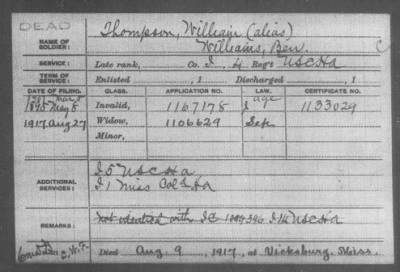 DEAD
NAME OF SOLDIER:
Thompson, William (alias)
Williams, Ben.
SERVICE:
Late rank, Co. I, 4 Reg't USCHa
TERM OF SERVICE:
Enlisted , 1 Discharged , 1
DATE OF FILING.
CLASS.
APPLICATION NO.
LAW.
CERTIFICATE NO.
1895 May 8
Invalid,
1167178
age
1133029
1917 Aug 27
Widow,
1106629
Sep
Minor,
ADDITIONAL SERVICES:
I 5 USCHa
I 1 Miss Col'd HA
REMARKS:
not identical with IC I 4 USCHa
Died Aug. 9, 1917, at Vicksburg, Miss.